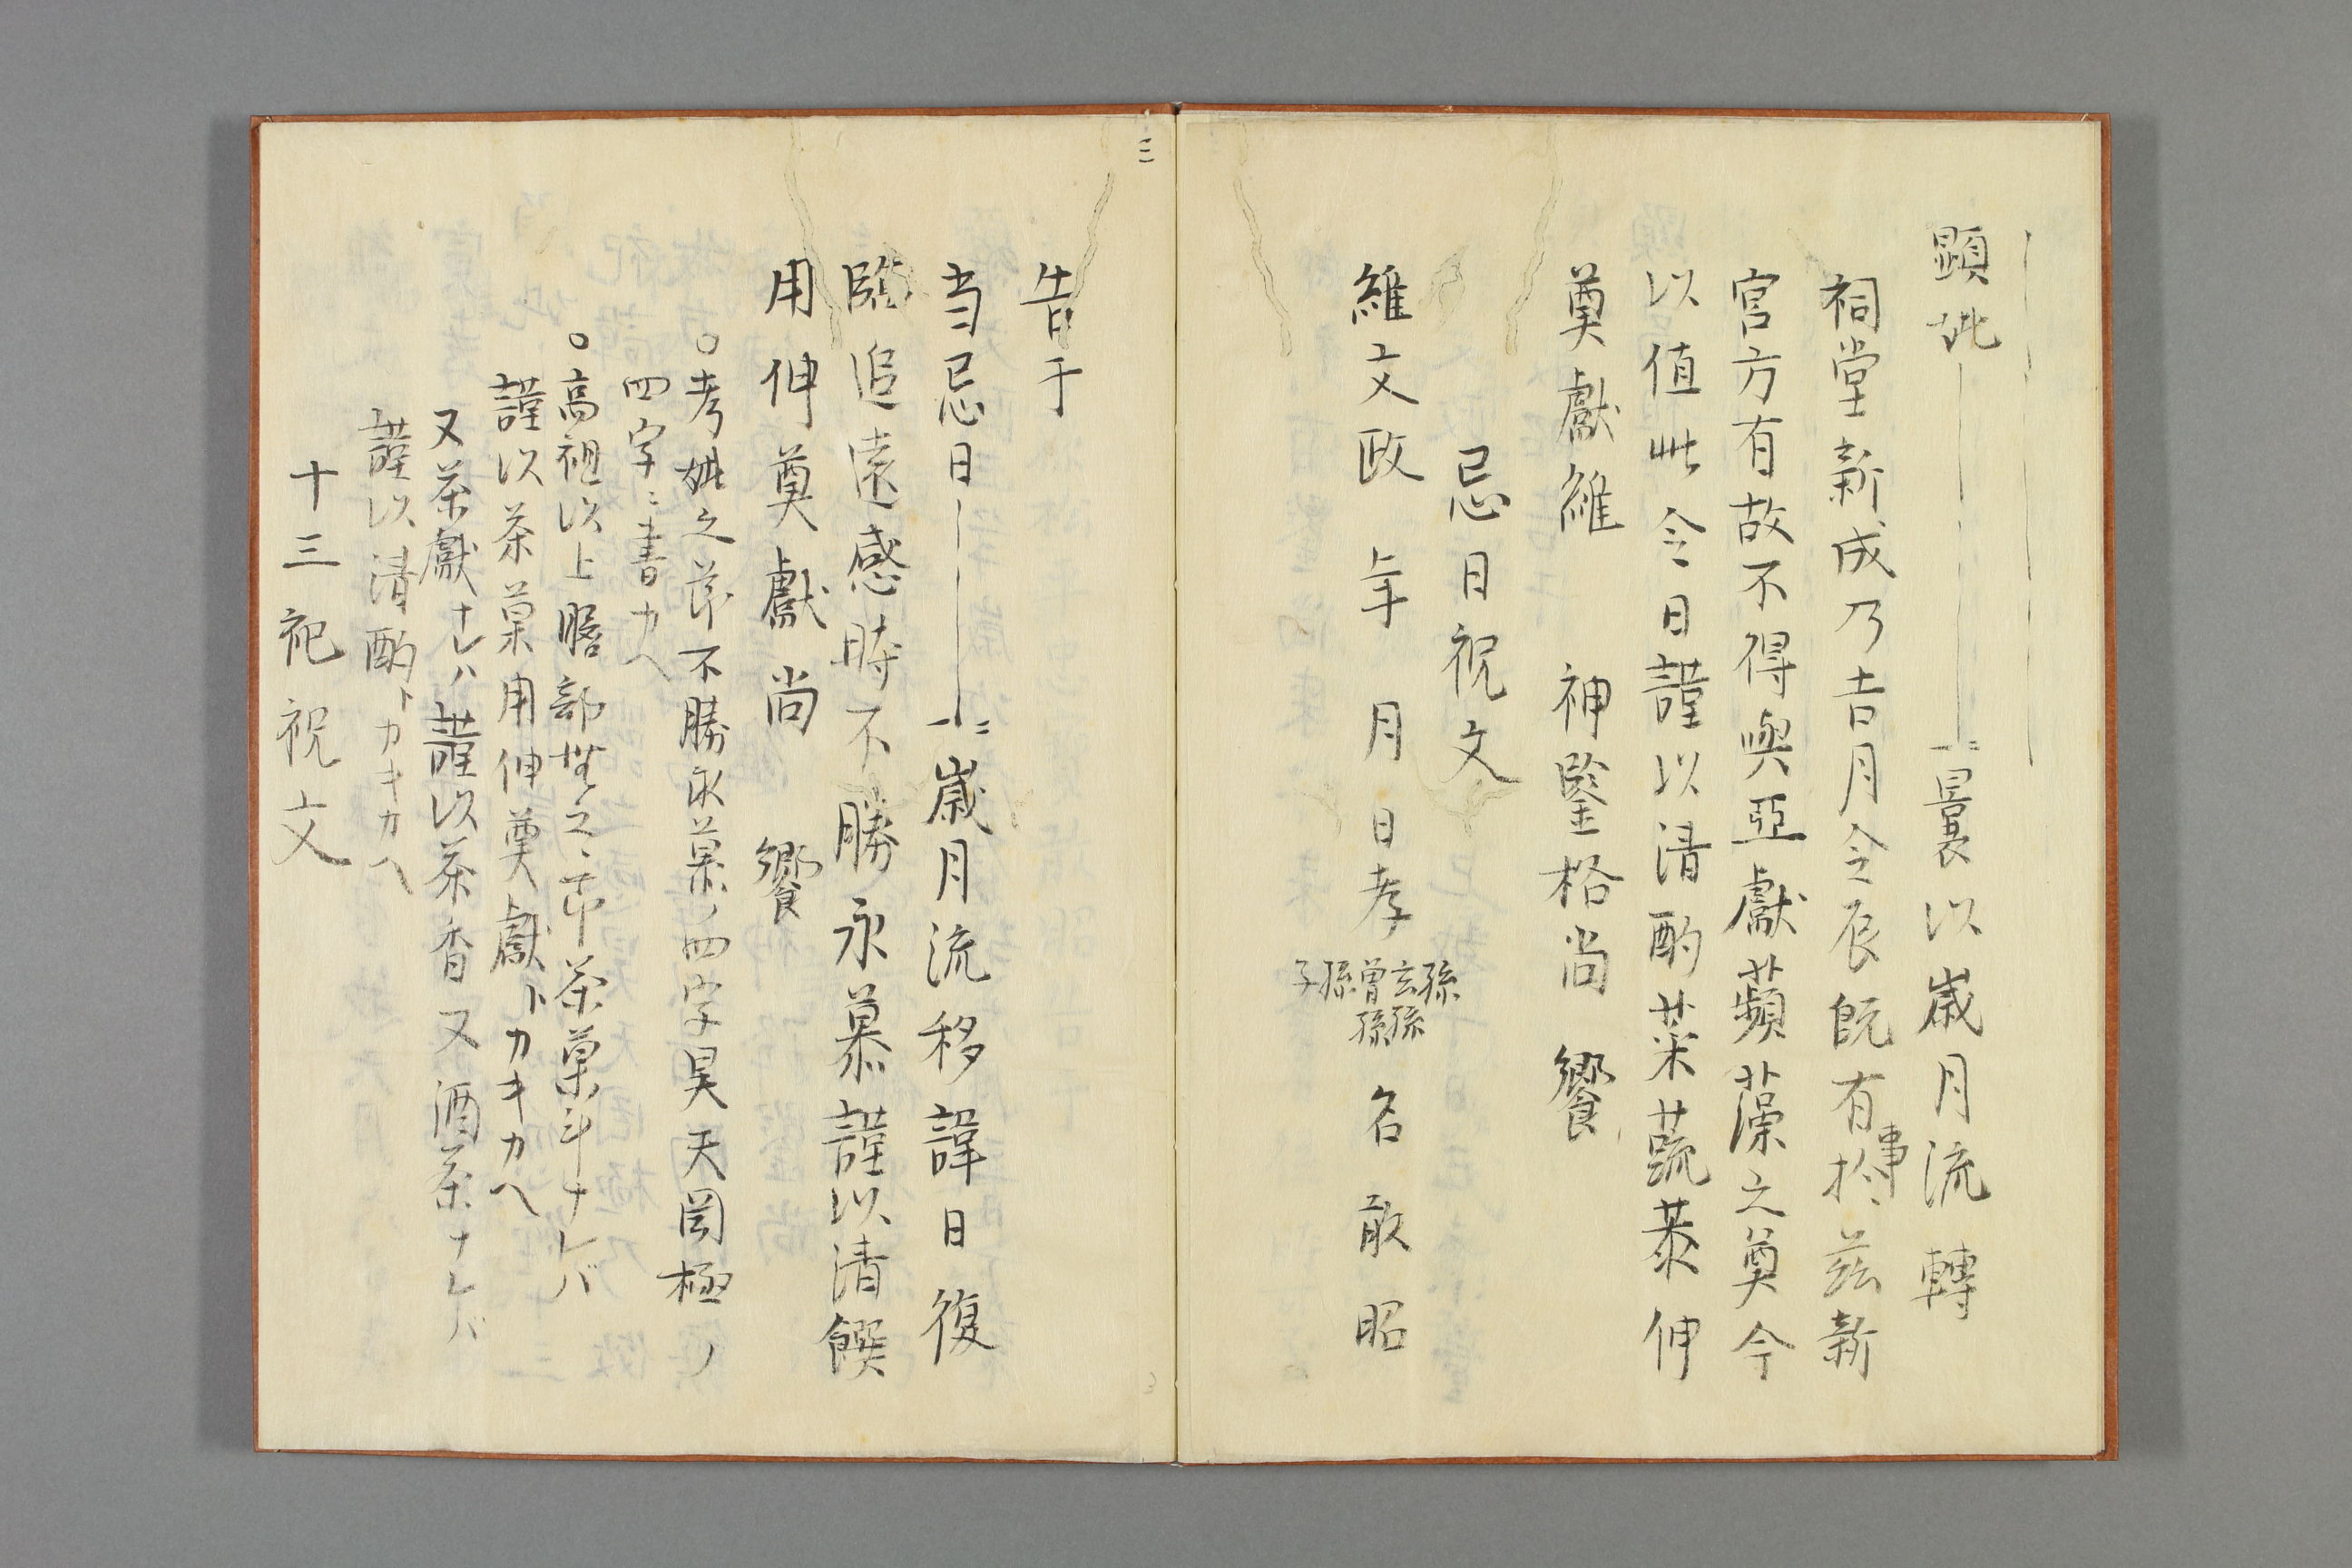 顕妣 曩以歳月流轉
祠堂新成乃吉月令辰既有事於茲新
宮方有故不得與亞獻蘋藻之奠今
以值此令日謹以清酌菜蔬恭伸
奠獻維 神鑒格尚 饗
忌日祝文
維文政 年 月 日孝 孫玄孫曽孫孫子 名敢昭
三
告于
当忌日 歳月流移諱日復
臨追遠感時不勝永慕謹以清饌
用伸奠獻尚 饗
○考妣之節不勝永慕ノ四字昊天罔極ノ
四字ニ書カヘ
○高祖以上膳部無之節茶菓斗ナレバ
謹以茶菓用伸奠獻トカキカヘ
又茶獻ナレハ謹以茶香又酒茶ナレバ
謹以清酌トカキカヘ
十三祀祝文